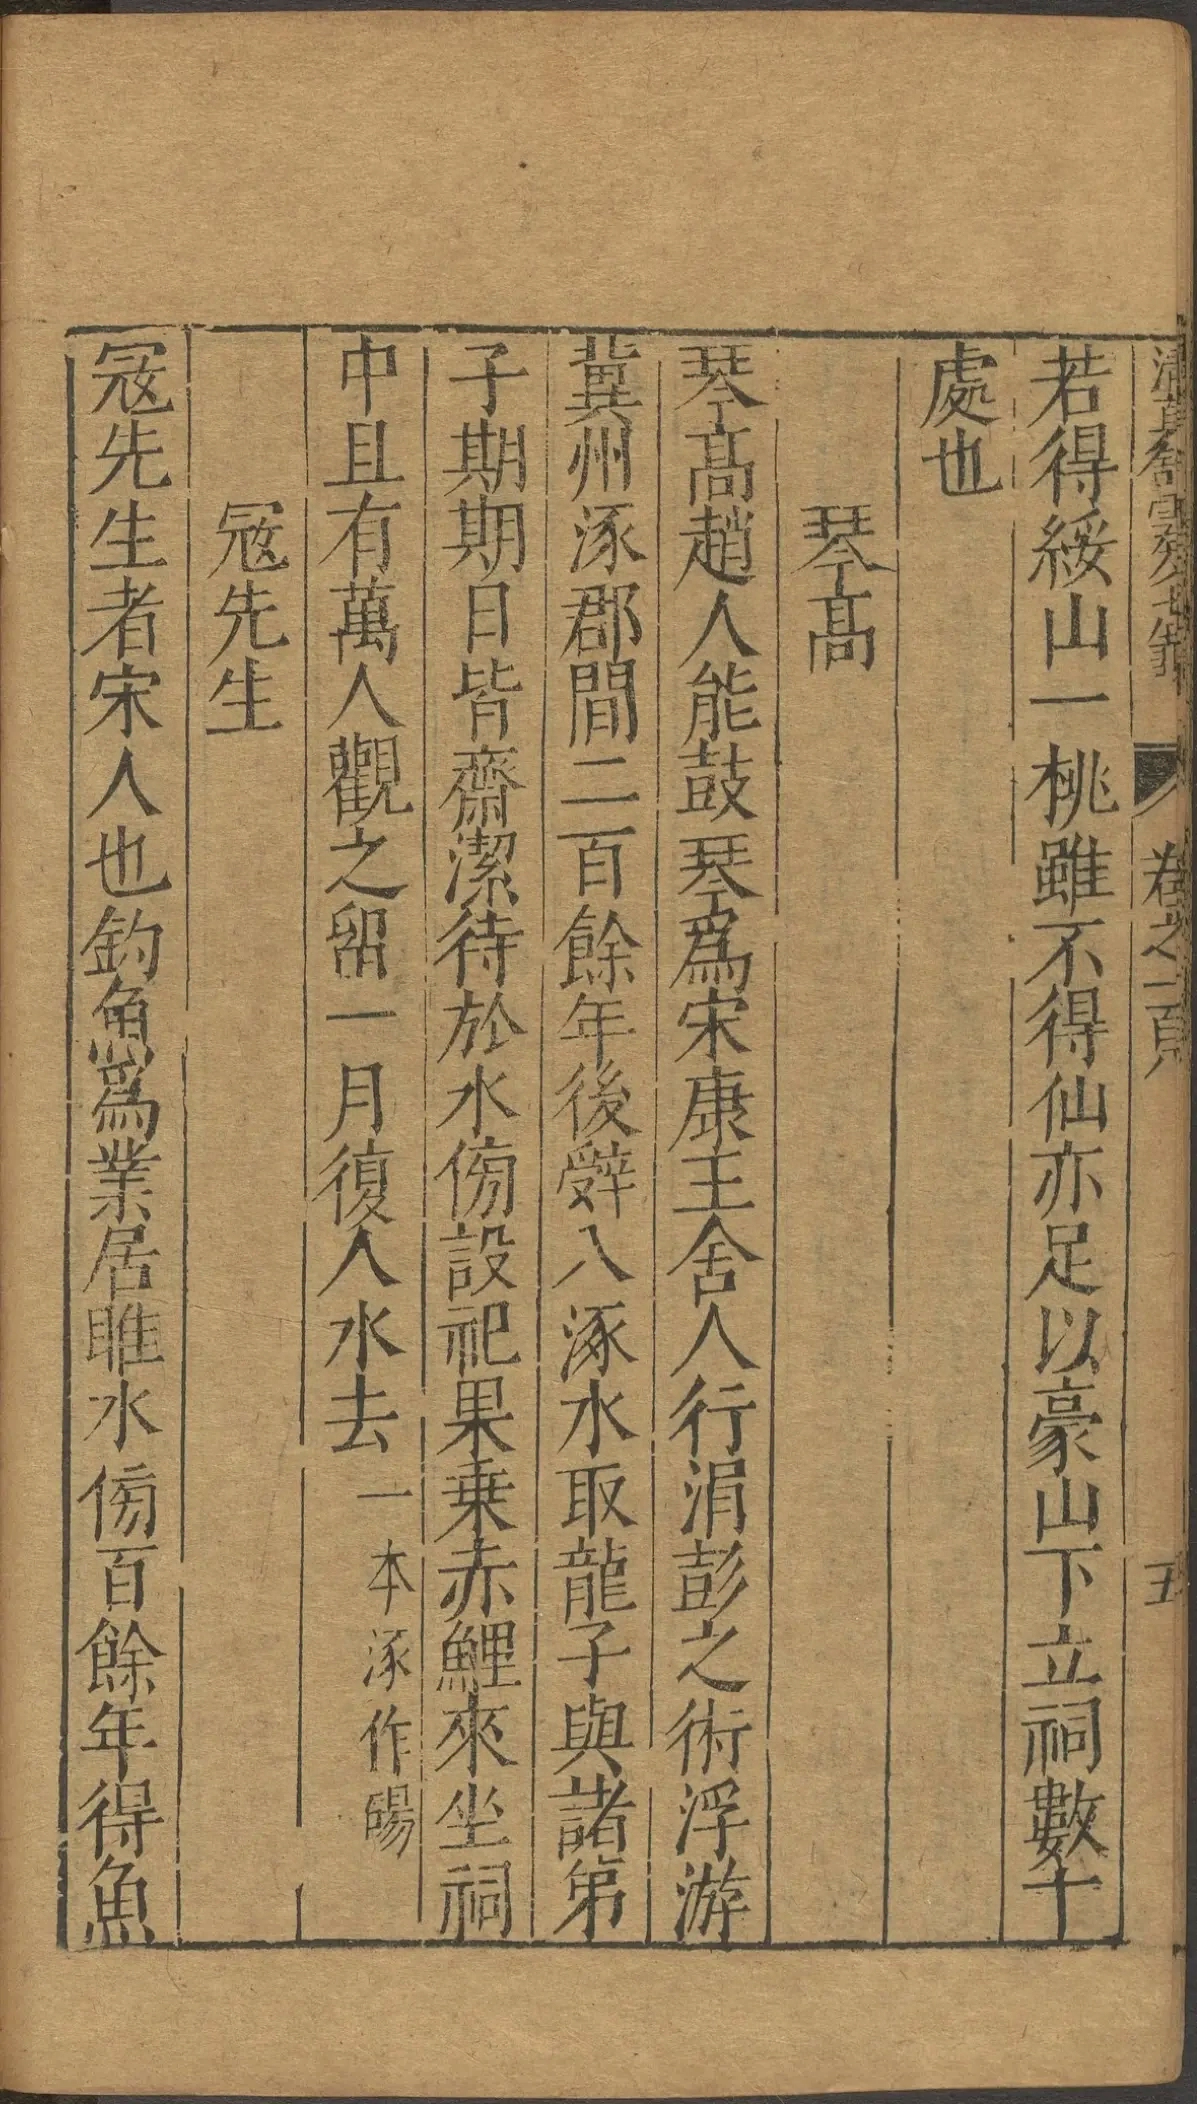 卷之一百
五
若得綏山一桃雖不得仙亦足以豪山下立祠數十
處也
琴高
琴高趙人能鼓琴爲宋康王舍人行涓彭之術浮游
冀州涿郡間二百餘年後辤入涿水取龍子與諸弟
子期期日皆齋潔待於水傍設祀果乗赤鯉來坐祠
中且有萬人觀之留一月復入水去一本涿作碭
冦先生
冦先生者宋人也釣魚爲業居睢水傍百餘年得魚